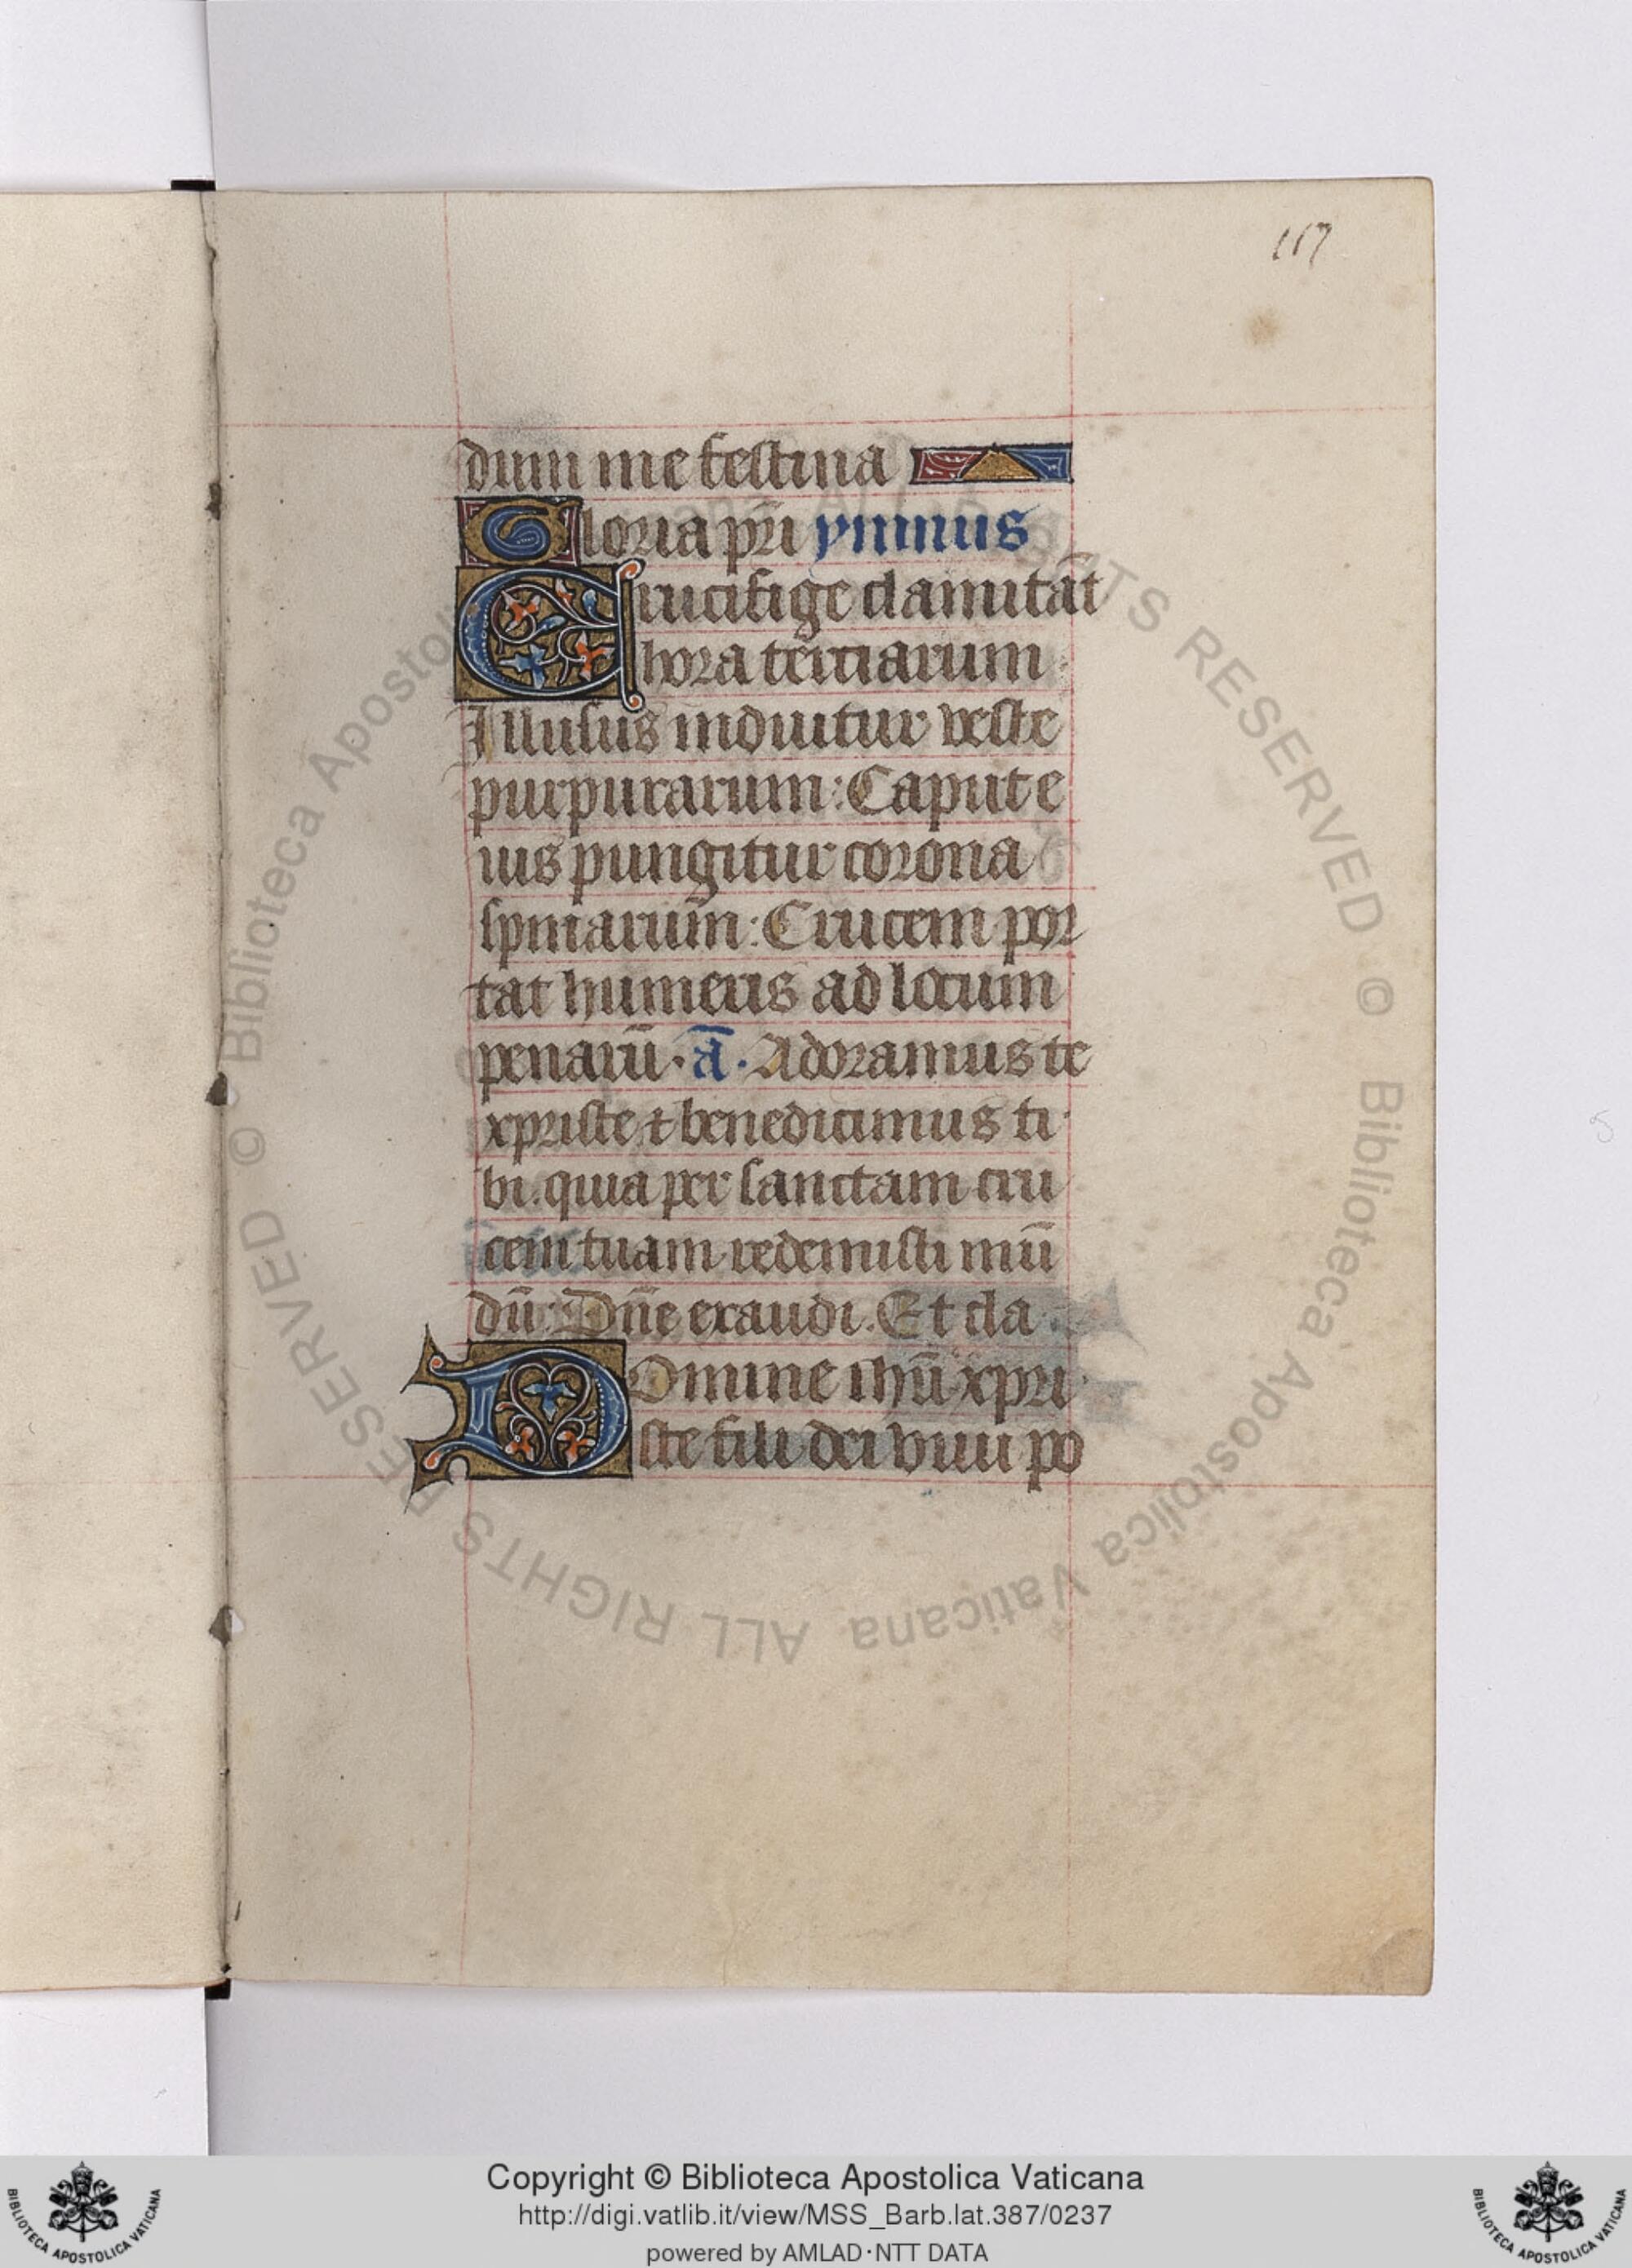 117
dum me festina
Gloria pr̄i ymnus
Crucifige clamitāt
hora terciarum
Illusus induitur veste
purpurarum: Caput e
ius pungitur corona
spiniarum̄: Crucem por
tat humeris ad locum
penarū. ā. Adoramus te
xpriste ⁊ benedicimus ti
bi. quia per sanctam cru
cem tuam redemisti mū
dū. Dn̄e exaudi. Et cla
Domine ihū xpri
ste fili dei viui po
© Biblioteca Apostolica Vaticana ALL RIGHTS RESERVED © Biblioteca Apostolica Vaticana ALL RIGHTS RESERVED
Copyright © Biblioteca Apostolica Vaticana
http://digi.vatlib.it/view/MSS_Barb.lat.387/0237
powered by AMLAD·NTT DATA
BIBLIOTECA APOSTOLICA VATICANA
BIBLIOTECA APOSTOLICA VATICANA